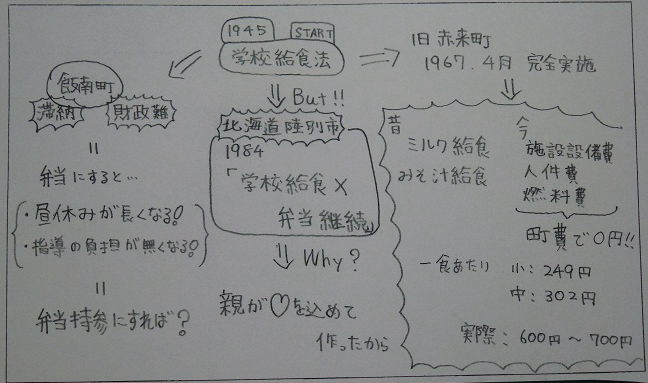 1945 START
学校給食法
飯南町
滞納 財政難
=
弁当にすると…
・昼休みが長くなる!
・指導の負担が無くなる!
=
弁当持参にすれば?
⇓ But!!
北海道陸別市
1984
「学校給食×
弁当継続」
⇓ Why?
親が♡を込めて
作ったから
旧 赤来町
1967.4月 完全実施
昔
ミルク給食
みそ汁給食
今
施設設備費
人件費
燃料費
町費で0円!!
一食あたり 小:249円
中:302円
実際:600円〜700円